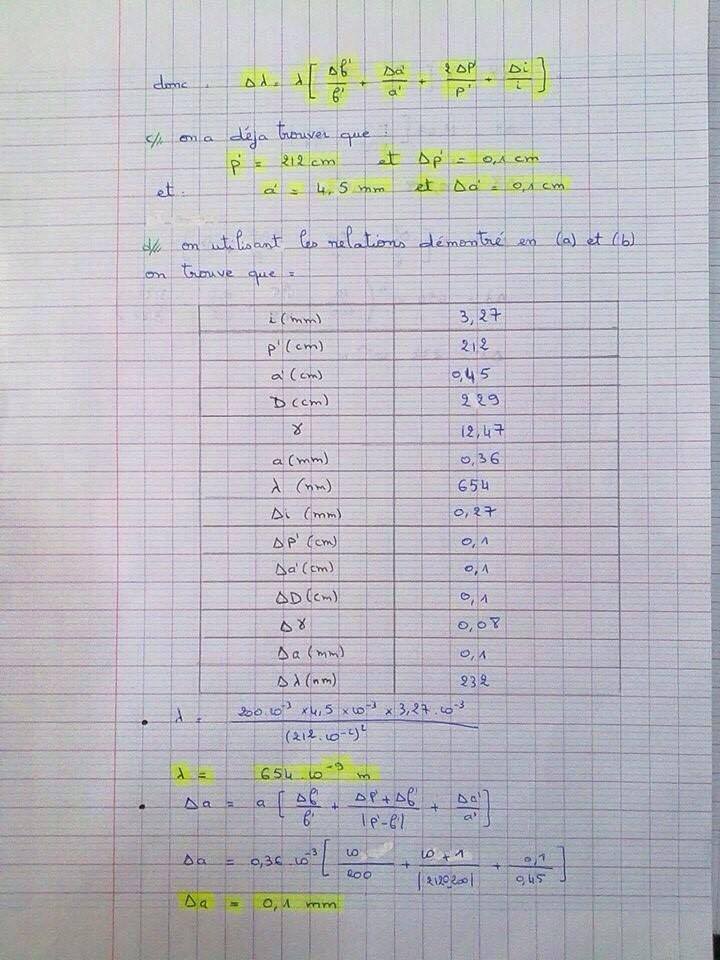 donc. Δλ = λ[ Δf'/f' + Δa'/a' + 2Δp'/p' + Δi/i ]
c// on a déja trouver que :
p' = 212 cm et Δp' = 0,1 cm
et. a' = 4,5 mm et Δa' = 0,1 cm
d// en utilisant les relations démontré en (a) et (b)
on trouve que =
i (mm) 3,27
p' (cm) 212
a' (cm) 0,45
D (cm) 229
γ 12,47
a (mm) 0,36
λ (nm) 654
Δi (mm) 0,27
ΔP' (cm) 0,1
Δa' (cm) 0,1
ΔD (cm) 0,1
Δγ 0,08
Δa (mm) 0,1
Δλ (nm) 232
• λ = 200.10⁻³ × 4,5 × 10⁻³ × 3,27.10⁻³ / (212.10⁻²)²
λ = 654.10⁻⁹ m
• Δa = a [ Δf'/f' + Δp' + Δf'/|p'-f'| + Δa'/a' ]
Δa = 0,36.10⁻³ [ 10/200 + 10 + 1/|2120,200| + 0,1/0,45 ]
Δa = 0,1 mm